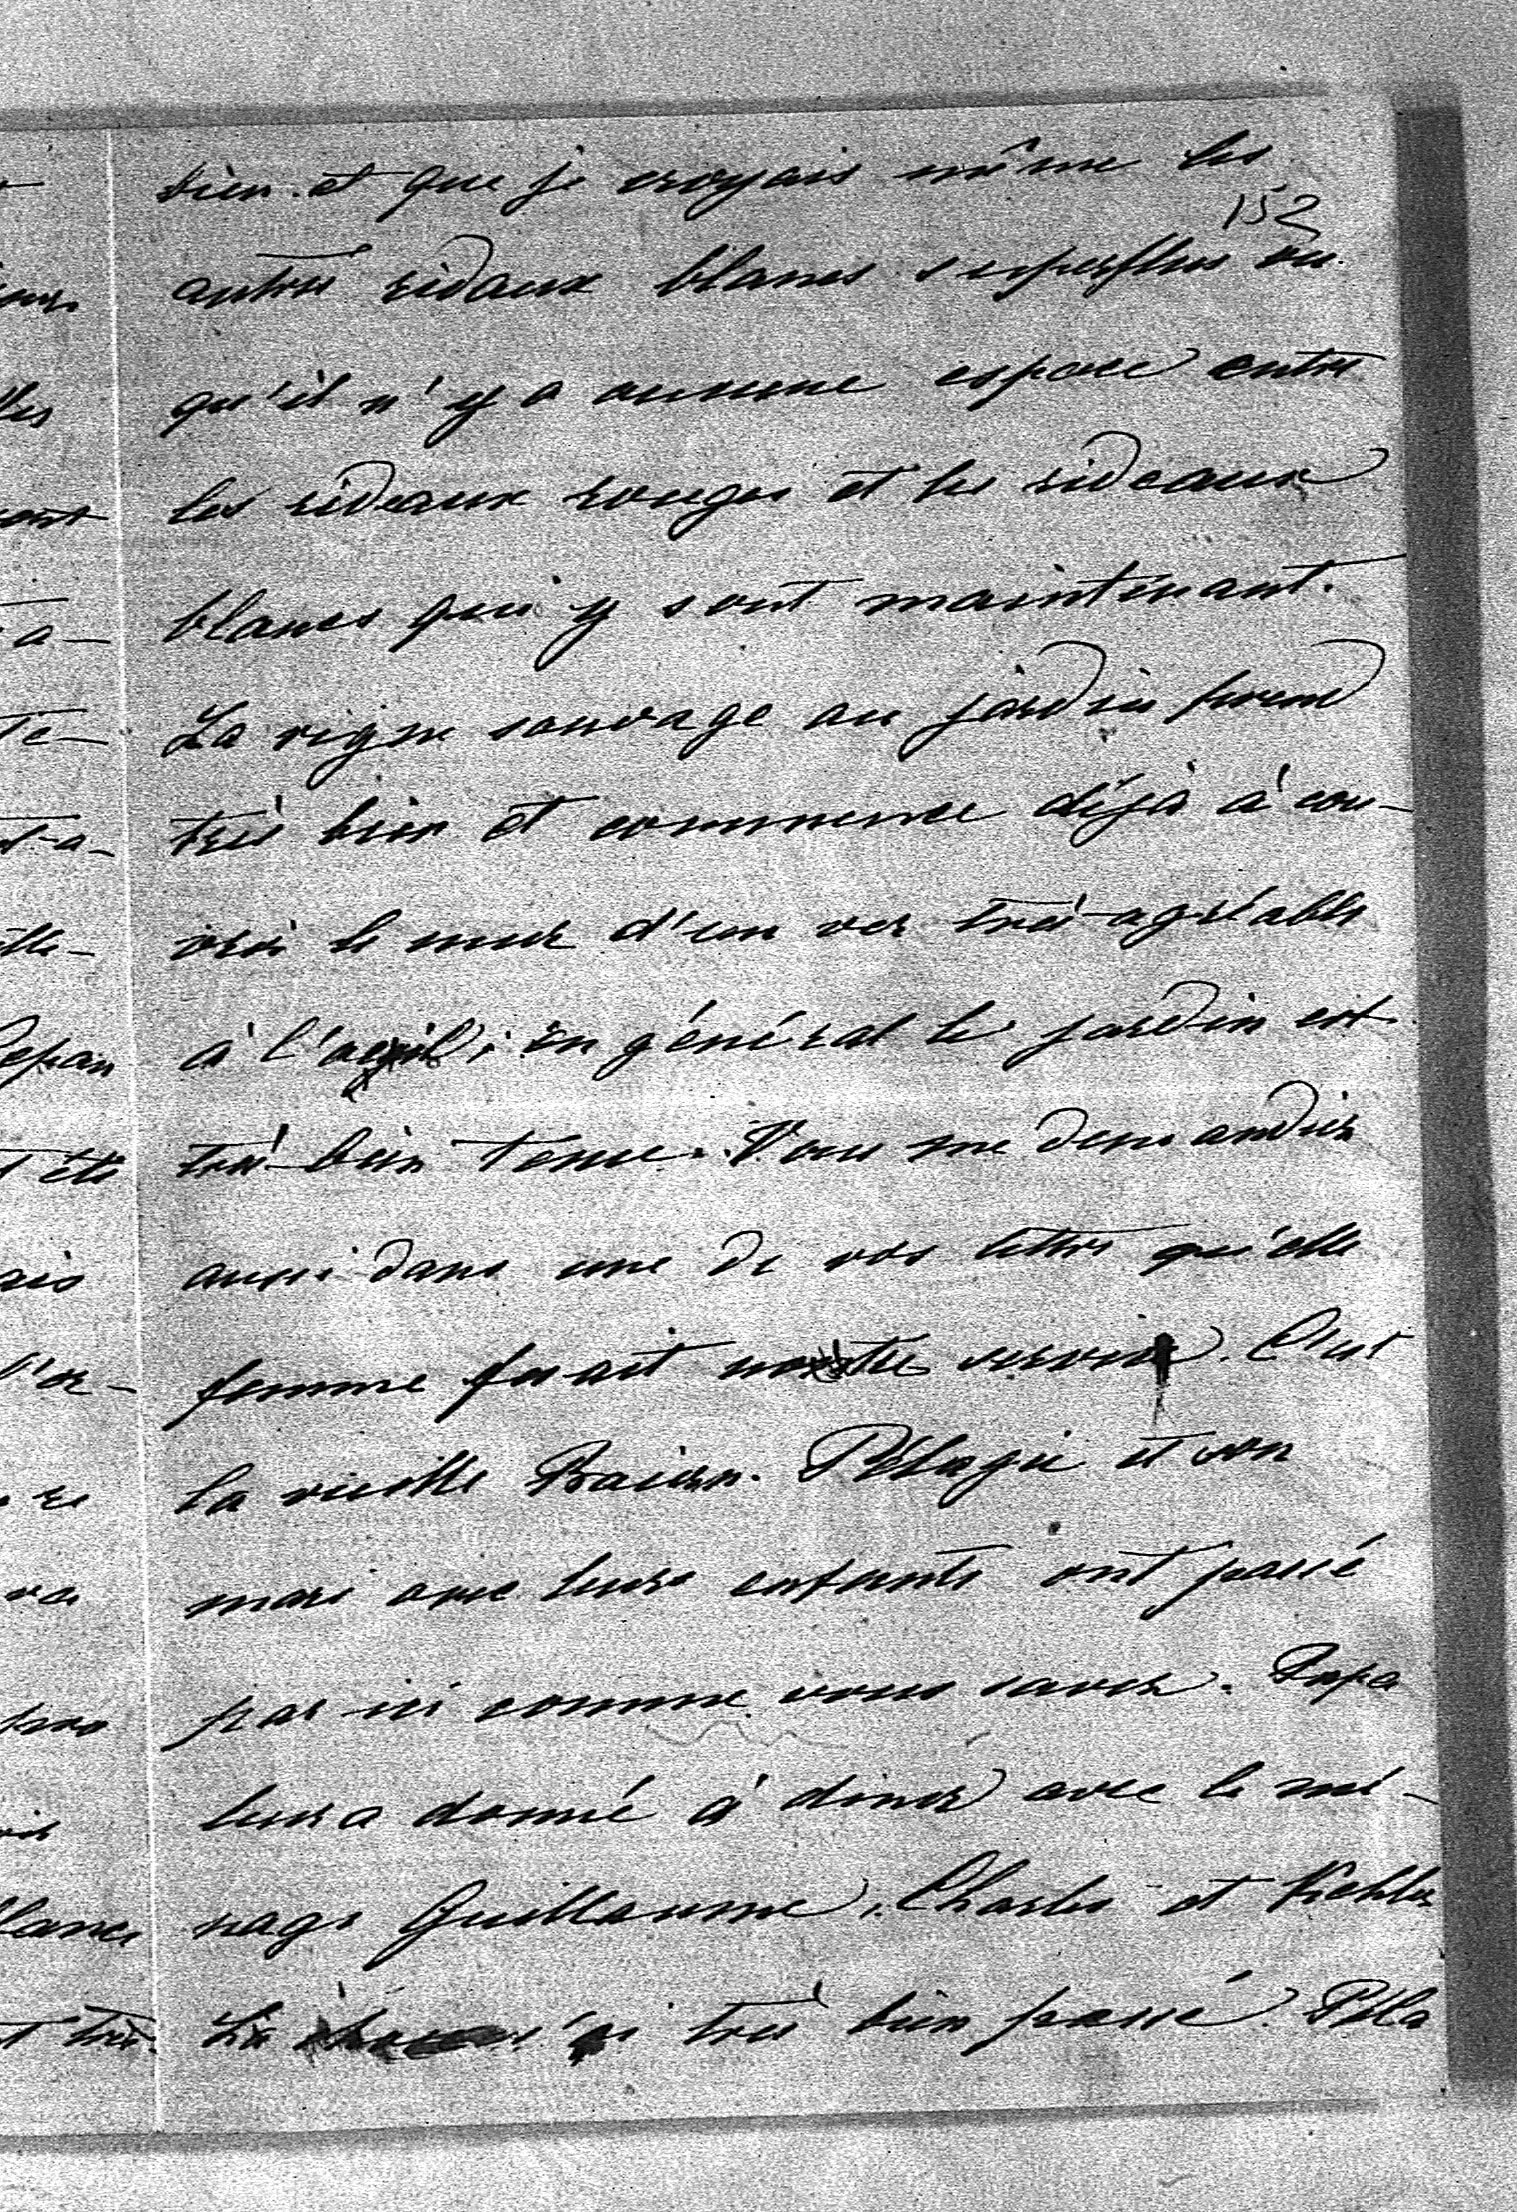 bien et que je croyais même les
152
autres ridaux blancs superflus vu
qu'il n'y a aucune espace entre
les rideaux rouges et les rideaux
blancs qui y sont maintenant.
La vigne sauvage au jardin prend
très bien et commence déjà à cou-
vrir le mur d'un ver très agréable
à l'œil; en général le jardin est
très bien tenue. Vous me demandiez
aussi dans une de vos lettres qu'elle
femme ferait notre service. C'est
la vieille Pélagie et son
mari avec leurs enfants ont passé
par ici comme vous savez. Papa
leur a donné à diner avec le mé-
nage Guillaume, Charles et
très bien passé. Péla